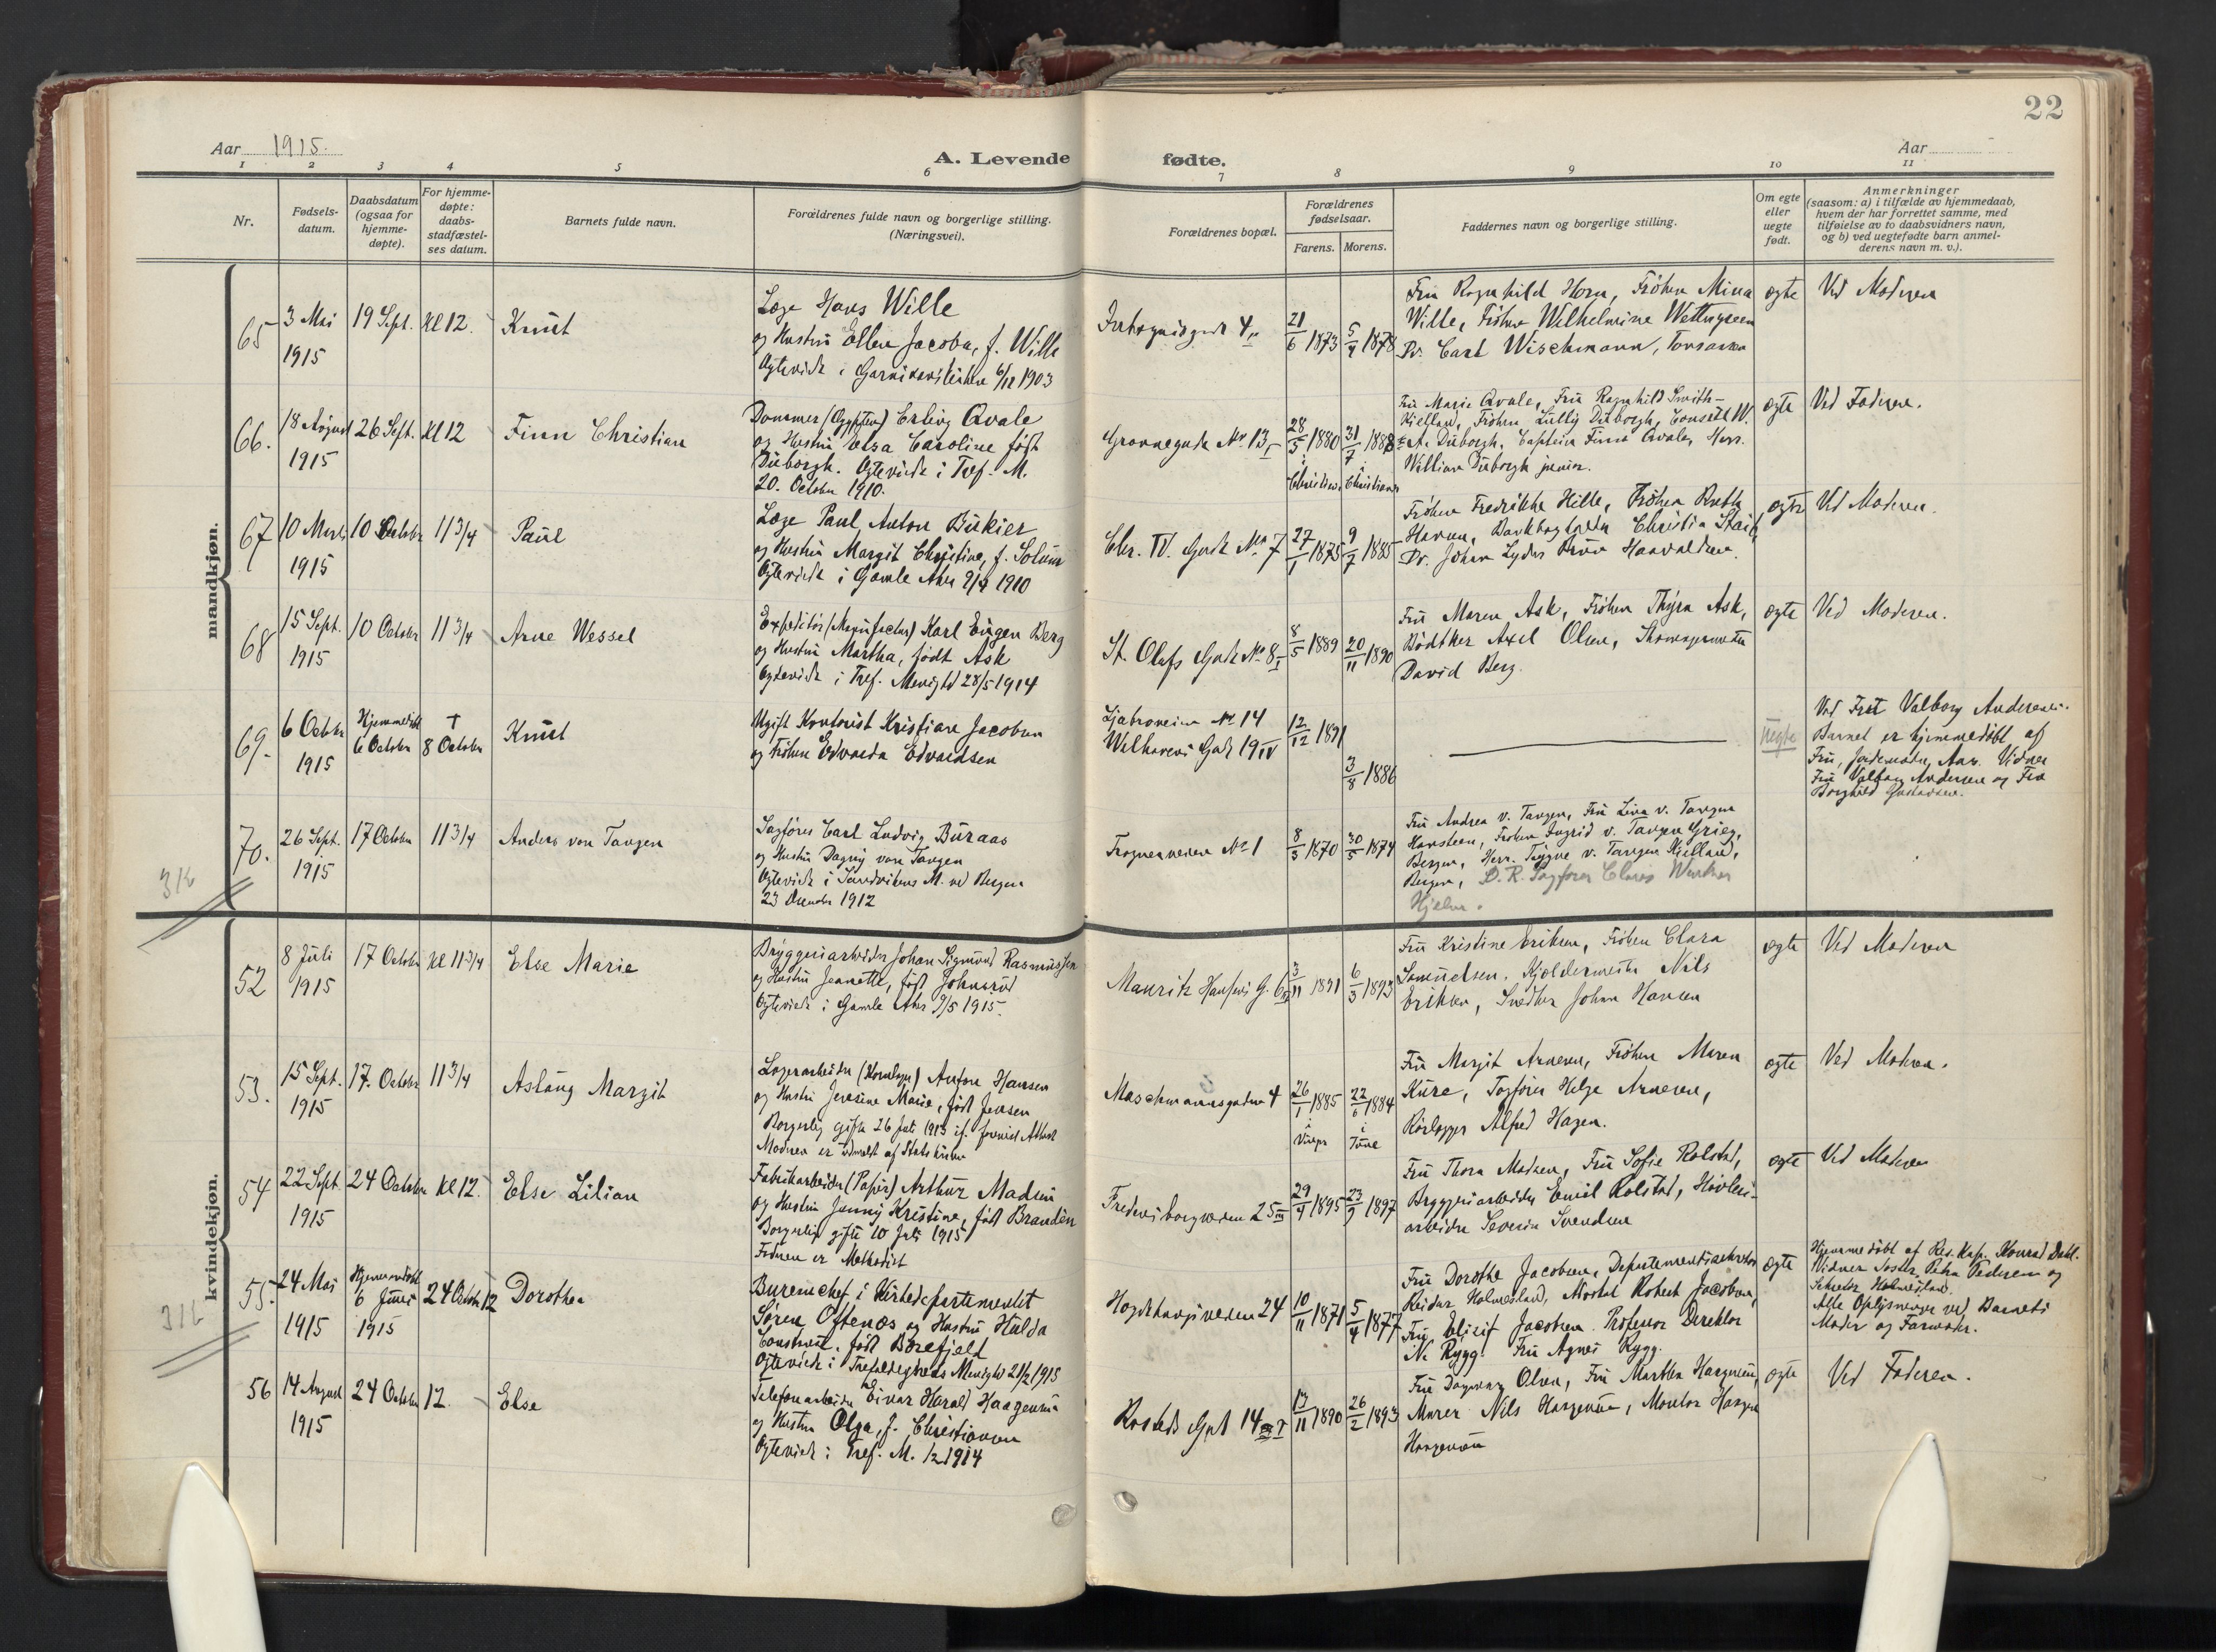 22
Aar 1915.
A. Levende fødte.
Aar
1 2 3 4 5 6 7 8 9 10 11
Nr.
Fødsels-
datum.
Daabsdatum
(ogsaa for
hjemme-
døpte).
For hjemme-
døpte:
daabs-
stadfæstel-
ses datum.
Barnets fulde navn.
Forældrenes fulde navn og borgerlige stilling.
(Næringsvei).
Forældrenes bopæl.
Forældrenes
fødselsaar.
Farens. Morens.
Faddernes navn og borgerlige stilling.
Om egte
eller
uegte
født.
Anmerkninger
(saasom: a) i tilfælde av hjemmedaab,
hvem der har forrettet samme, med
tilføielse av to daabsvidners navn,
og b) ved uegtefødte barn anmel-
derens navn m. v.).
mandkjøn.
65
3 Mai
1915
19 Sept.
Kl 12.
Knut
Læge Hans Wille
og Hustru Ellen Jacoba, f. Wille
1903
21/6 1873
1878
Fru Ragnhild Horn, Frøken Mina
Wille, Frøken Wilhelmine
Dr. Carl Wischmann,
egte
Ved Moderen
66.
18 August
1915
26 Sept.
Kl 12
Finn Christian
Dommer (Ægypten) Erling Qvale
og Hustru Elsa Caroline født
Duborgh. Egteviet i Tref. M.
20. October 1910.
No 13
28/5 1880
31/7 1888
Fru Marie Qvale, Fru Ragnhild Smith-
Kielland, Frøken Lilly Duborgh, Consul W.
A. Duborgh, Captein Finn Qvale, Herr.
William Duborgh junior.
egte
Ved Faderen.
67
10 Mars
1915
10 October
11 3/4
Paul
Læge Paul Anton
og Hustru Margit Christine, f. Solum
Egteviet i Gamle Aker 9/4 1910
Chr. IV. Gade No 7
27/1 1875
9/7 1885
Frøken Fredrikke Hille, Frøken
Christia
Dr. Johan Lyder Brun
egte
Ved Moderen.
68
15 Sept.
1915
10 October
11 3/4
Arne Wessel
Expeditør (Manufactur) Karl Eugen Berg
og Hustru Martha, født Ask
Egteviet i Tref. Menighd 28/5 1914
St. Olafs Gade No 8 I
8/5 1889
20/11 1890
Fru Maren Ask, Frøken Thyra Ask,
Bødtker Axel Olsen,
David Berg.
egte
Ved Moderen.
69.
6 Octobr
1915
Hjemmedøbt
6 October
†
8 October
Knut
Ugift Kontorist Kristian Jacobsen
og Frøken Edvarda Edvardsen
Ljabroveien No 14
Welhavens Gade 19 IV
12/12 1891
3/8 1886
uegte
Ved Valborg Andersen.
Barnet er hjemmedøbt af
Fru Valborg Andersen og Fru
Borghild Gustavsen.
70.
26 Sept.
1915
17 October
11 3/4
Anders von Tangen
Sagfører Carl Ludvig Buraas
og Hustru Dagny von Tangen
Egteviet i Sandvikens M. ved Bergen
23 December 1912
Frognerveien No 1
8/3 1870
30/5 1874
Fru Andrea v. Tangen, Fru Lina v. Tangen
Hansteen, Frøken Ingrid v. Tangen Grieg,
Bergen, Herr. Trygve v. Tangen Kielland,
Bergen, O. R. Sagfører
Hjelm.
kvindekjøn.
52
8 Juli
1915
17 October
Kl 11 3/4
Else Marie
Bryggeriarbeider Johan Sigmund Rasmussen
og Hustru Jeanette, født Johnsrud
Egteviet i Gamle Aker 9/5 1915.
Mauritz Hansens G. 6
3/11 1891
6/3 1893
Fru Kristine Eriksen, Frøken Clara
Samuelsen. Kjeldermester Nils
Eriksen, Snedker Johan Hansen
egte
Ved Moderen
53.
15 Sept.
1915
17. October
11 3/4
Aslaug Margit
Lagerarbeider Anton Hansen
og Hustru Jensine Marie, født Jensen
Borgerlig gifte 26 Juli 1913
Moderen er udmeldt af Statskirken
Maschmannsgaden 4
26/1 1885
22/6 1884
Tune
Fru Margit Arnesen, Frøken Maren
Kure, Helge Arnesen,
Rørlægger Alfred Hagen.
egte
Ved Moderen.
54
22 Sept.
1915
24 October
Kl 12.
Else Lilian
Fabrikarbeider (Papir) Arthur Madsen
og Hustru Jenny Kristine, født Brandén
Borgerlig gifte 10 Juli 1915
Faderen er Methodist
Fredensborgveien 25 III
29/4 1895
1897
Fru Thora Madsen, Fru Sofie Rolstad,
Bryggeriarbeider Emil Rolstad, Høvleri-
arbeider Severin Svendsen
egte
Ved Moderen
55.
24 Mai
1915
Hjemmedøbt
6 Juni
1915
24 Octobr
12
Dorothea
Bureauchef i Kirkedepartementet
Søren Oftenæs og Hustru Hulda
Constance, født Borefjeld
Egteviet i Trefoldigheds Menighed 1915
24
10/11 1871
5/4 1877
Fru Dorothe Jacobsen, Departementssekretær
Reidar Holmesland, Robert Jacobsen,
Fru Elisif Jacobsen. Professor Direktør
N. Rygg. Fru Agnes Rygg.
egte
Hjemmedøbt af Res. Kap. Konrad Dahl.
Vidner Søster Petra Pedersen og
Sekretær Holmesland.
Alle Oplysninger ved Barnets
Moder og Farmoder.
56
14 August
1915
24 October
12.
Else
Telefonarbeider Einar Harald Haagensen
og Hustru Olga, f. Christiansen
Egteviet i Tref. M. 1914
Rosteds Gad 14
13/11 1890
26/2 1893
Fru Dagmar Olsen, Fru Martha Haagensen,
Murer Nils Haagensen, Montør
Haagensen
egte
Ved Faderen.